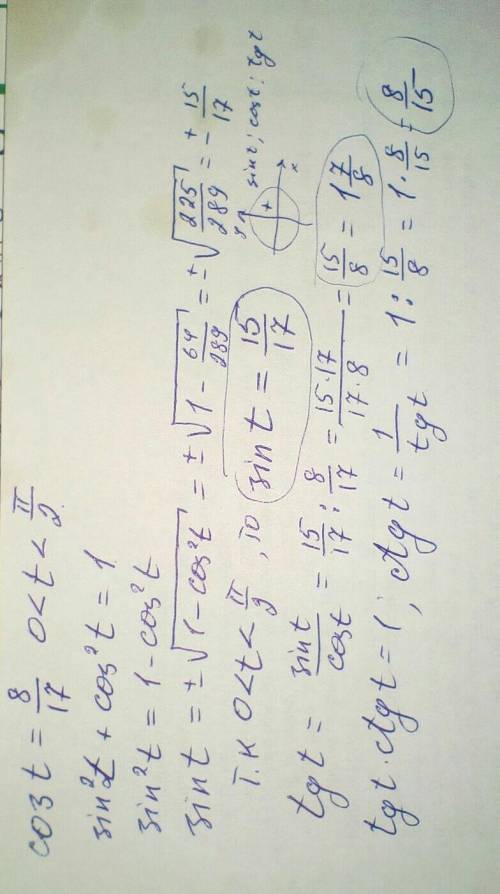 cos t = 8/17   0 < t < π/2
sin²t + cos²t = 1
sin²t = 1 - cos²t
sin t = ±√(1 - cos²t) = ±√(1 - 64/289) = ±√(225/289) = ± 15/17
Т.к 0 < t < π/2, то sin t = 15/17
y + x sin t; cos t; tg t
tg t = sin t/cos t = 15/17 : 8/17 = 15·17/17·8 = 15/8 = 1 7/8
tg t · ctg t = 1; ctg t = 1/tg t = 1 : 15/8 = 1 · 8/15 = 8/15